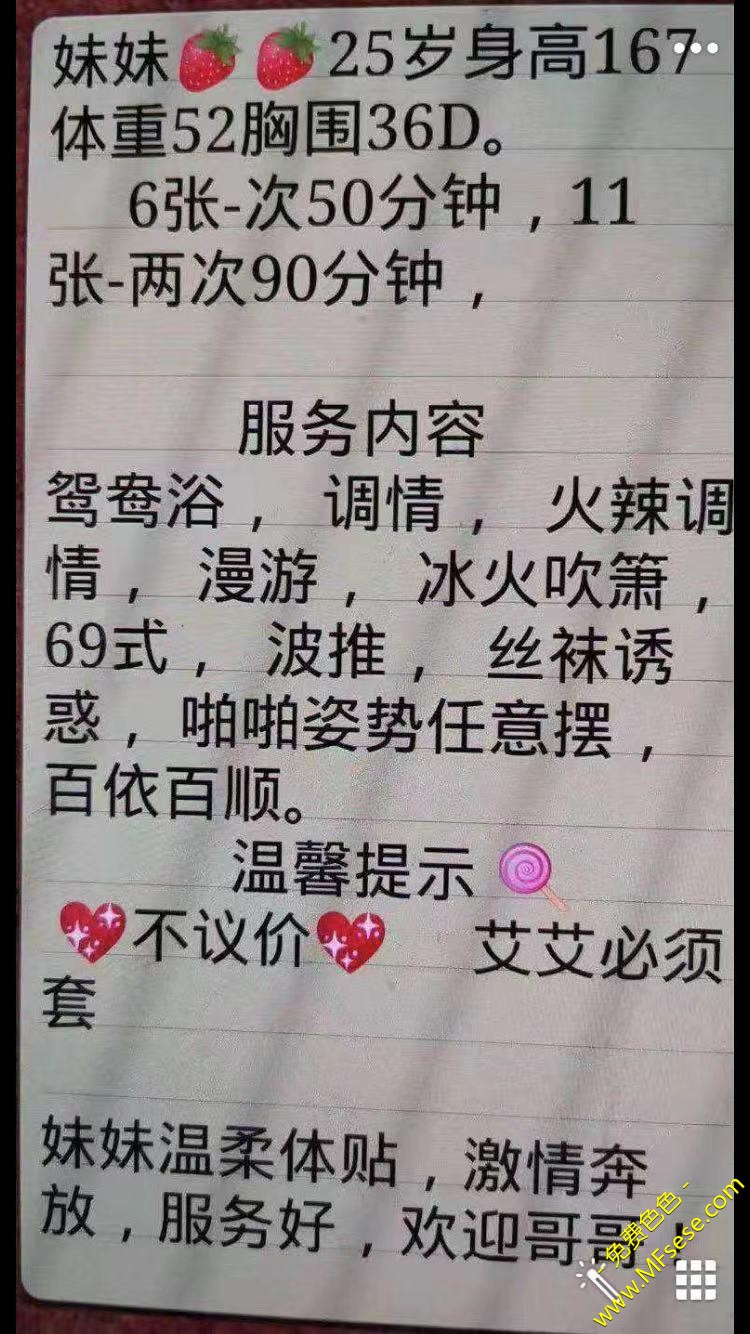 妹妹🍓🍓25岁身高167
体重52胸围36D。
6张-次50分钟，11
张-两次90分钟，
服务内容
鸳鸯浴，调情，火辣调
情，漫游，冰火吹箫，
69式，波推，丝袜诱
惑，啪啪姿势任意摆，
百依百顺。
温馨提示🍭
💖不议价💖 艾艾必须
套
妹妹温柔体贴，激情奔
放，服务好，欢迎哥哥！
免费色色-
www.MFsese.com